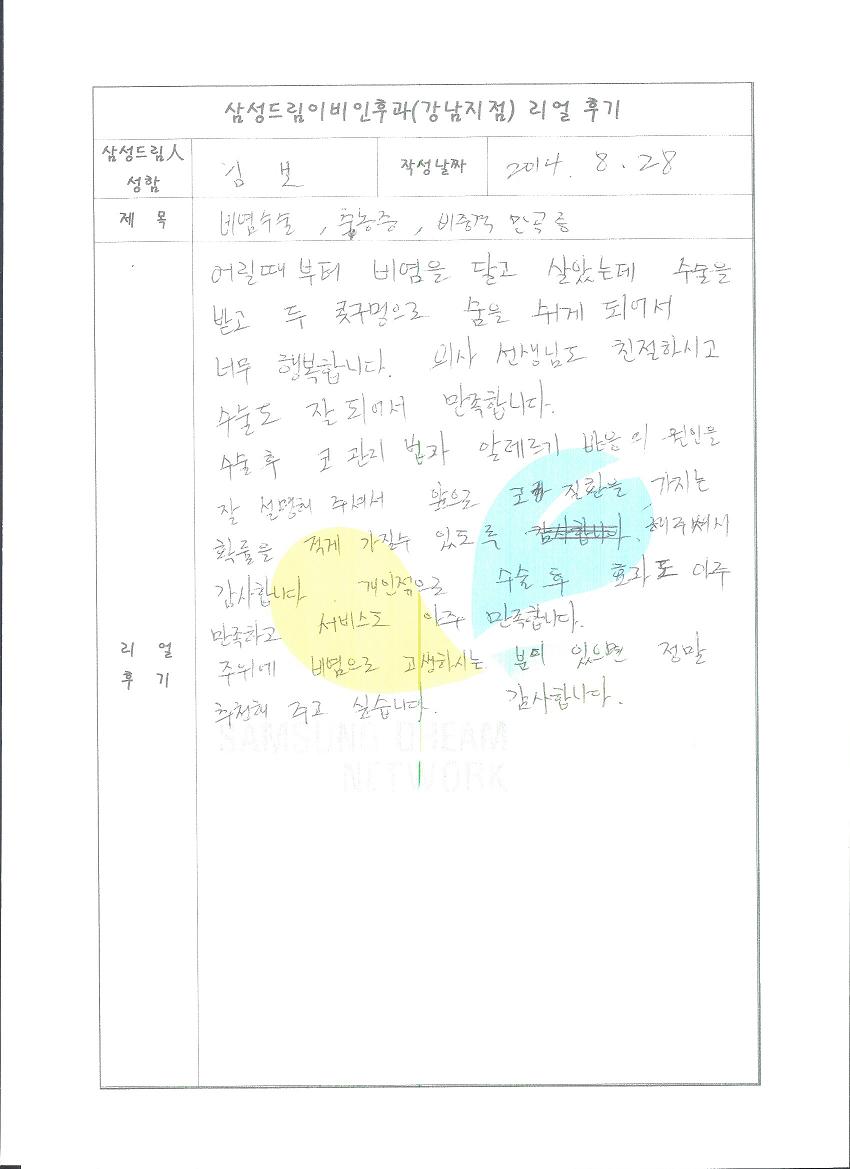 삼성드림이비인후과(강남지점) 리얼 후기
삼성드림人 성함
임 보
작성날짜
2014. 8. 28
제 목
비염수술, 축농증, 비중격 만곡증
리 얼 후 기
어릴때 부터 비염을 달고 살았는데 수술을
받고 두 콧구멍으로 숨을 쉬게 되어서
너무 행복합니다. 의사 선생님도 친절하시고
수술도 잘 되어서 만족합니다.
수술 후 코 관리 법과 알레르기 반응의 원인을
잘 설명해 주셔서 앞으로 코 질환을 가지는
확률을 적게 가질수 있도록 감사합니다. 해주셔서
감사합니다. 개인적으로 수술 후 효과도 아주
만족하고 서비스도 아주 만족합니다.
주위에 비염으로 고생하시는 분이 있으면 정말
추천해 주고 싶습니다. 감사합니다.
SAMSUNG DREAM
NETWORK